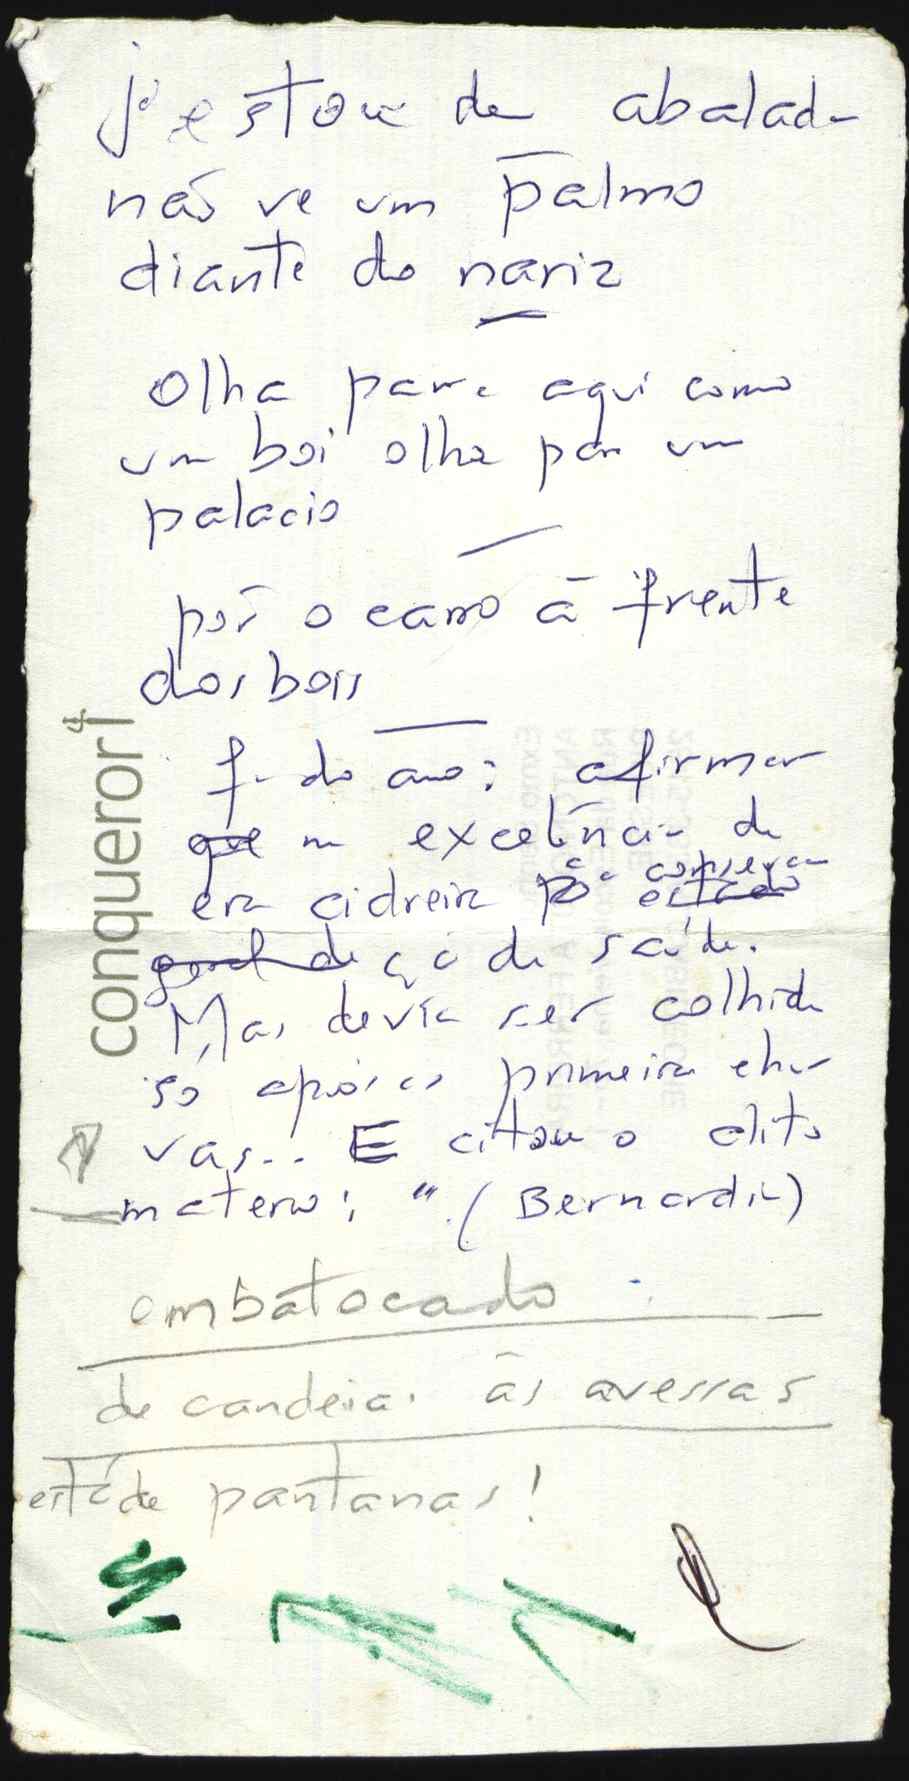 já estou de abalada
não ve um palmo
diante do nariz
Olha para aqui como
um boi olha para um
palacio
pôr o carro à frente
dos bois
do ano: afirmar
que a excelência da
erva cidreira conserva
estado
geral de ção da saúde.
Mas devia ser colhida
só após as primeiras chu
vas... E citou o dito
materno: " (Bernarda)
embatocado
de candeias às avessas
está de pantanas!
conqueror